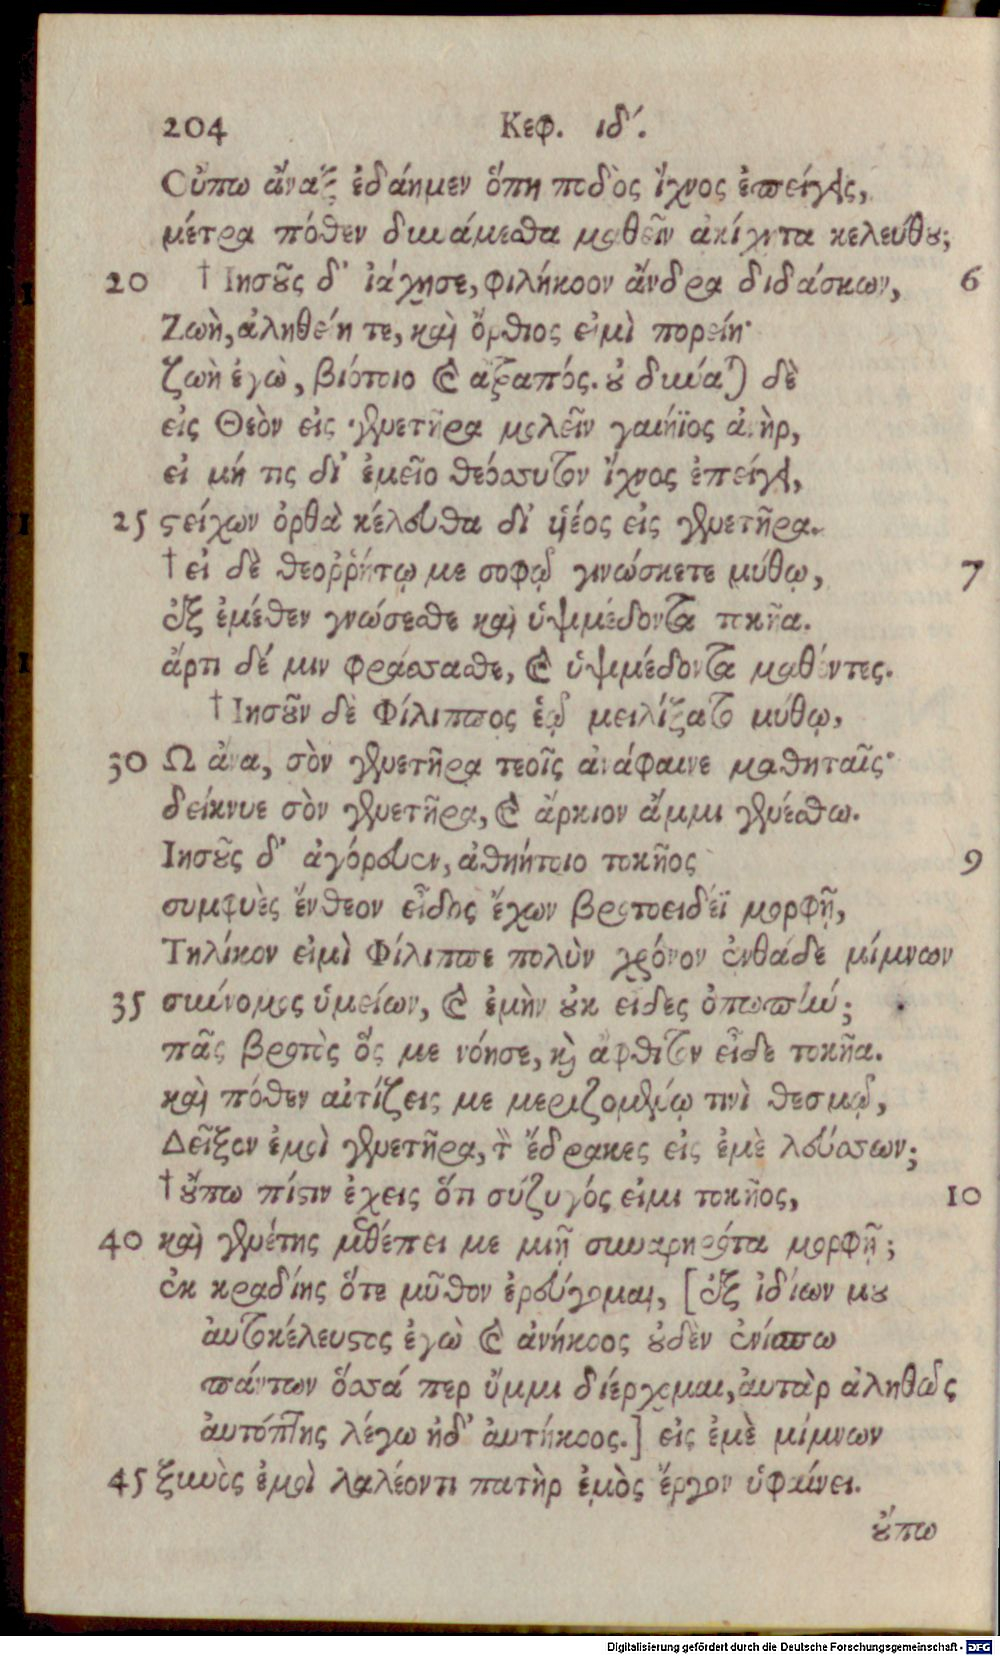 204 Κεφ. ιδ´.
Οὔπω ἄναξ ἐδάημεν ὅπη ποδὸς ἴχνος ἐπείγεις,
μέτρα πόθεν δυνάμεσθα μαθεῖν ἀκίχητα κελεύθου;
20 † Ιησοῦς δ᾽ ἰάχησε, φιλήκοον ἄνδρα διδάσκων, 6
Ζωὴ, ἀληθείη τε, καὶ ὄρθιος εἰμὶ πορείη·
ζωὴ ἐγὼ, βιότοιο καὶ ἀτραπός. οὐ δύναται δὲ
εἰς Θεὸν εἰς γενετῆρα μολεῖν γαιήϊος ἀνὴρ,
εἰ μή τις δι᾽ ἐμεῖο θεόσσυτον ἴχνος ἐπείγει,
25 στείχων ὀρθὰ κέλευθα δι᾽ υἱέος εἰς γενετῆρα.
† εἰ δὲ θεοῤῥήτῳ με σοφῷ γινώσκετε μύθῳ, 7
ἐξ ἐμέθεν γνώσεσθε καὶ ὑψιμέδοντα τοκῆα.
ἄρτι δέ μιν φράσσασθε, καὶ ὑψιμέδοντα μαθόντες.
† Ιησοῦν δὲ Φίλιππος ἑῷ μειλίξατο μύθῳ,
30 Ω ἄνα, σὸν γενετῆρα τεοῖς ἀνάφαινε μαθηταῖς·
δείκνυε σὸν γενετῆρα, καὶ ἄρκιον ἄμμι γενέσθω.
Ιησοῦς δ᾽ ἀγόρευεν, ἀθηήτοιο τοκῆος 9
συμφυὲς ἔνθεον εἶδος ἔχων βροτοειδέϊ μορφῇ,
Τηλίκον εἰμὶ Φίλιππε πολὺν χρόνον ἐνθάδε μίμνων
35 σύννομος ὑμείων, καὶ ἐμὴν οὐκ εἶδες ὀπωπήν;
πᾶς βροτὸς ὅς με νόησε, καὶ ἄφθιτον εἶδε τοκῆα.
καὶ πόθεν αἰτίζεις με μεριζομένῳ τινὶ θεσμῷ,
Δεῖξον ἐμοὶ γενετῆρα, τὸν ἔδρακες εἰς ἐμὲ λεύσσων;
† οὔπω πίστιν ἔχεις ὅτι σύζυγός εἰμι τοκῆος, 10
40 καὶ γενέτης μεθέπει με μιῇ συναρηρότα μορφῇ;
ἐκ κραδίης ὅτε μῦθον ἐρεύγομαι, [ἐξ ἰδίων μου
αὐτοκέλευστος ἐγὼ καὶ ἀνήκοος οὐδὲν ἐνίσπω
πάντων ὅσσά περ ὔμμι διέρχομαι, αὐτὰρ ἀληθῶς
αὐτόπτης λέγω ἠδ᾽ αὐτήκοος.] εἰς ἐμὲ μίμνων
45 ξυνὸς ἐμοὶ λαλέοντι πατὴρ ἐμὸς ἔργον ὑφαίνει.
οὔπω
Digitalisierung gefördert durch die Deutsche Forschungsgemeinschaft - DFG